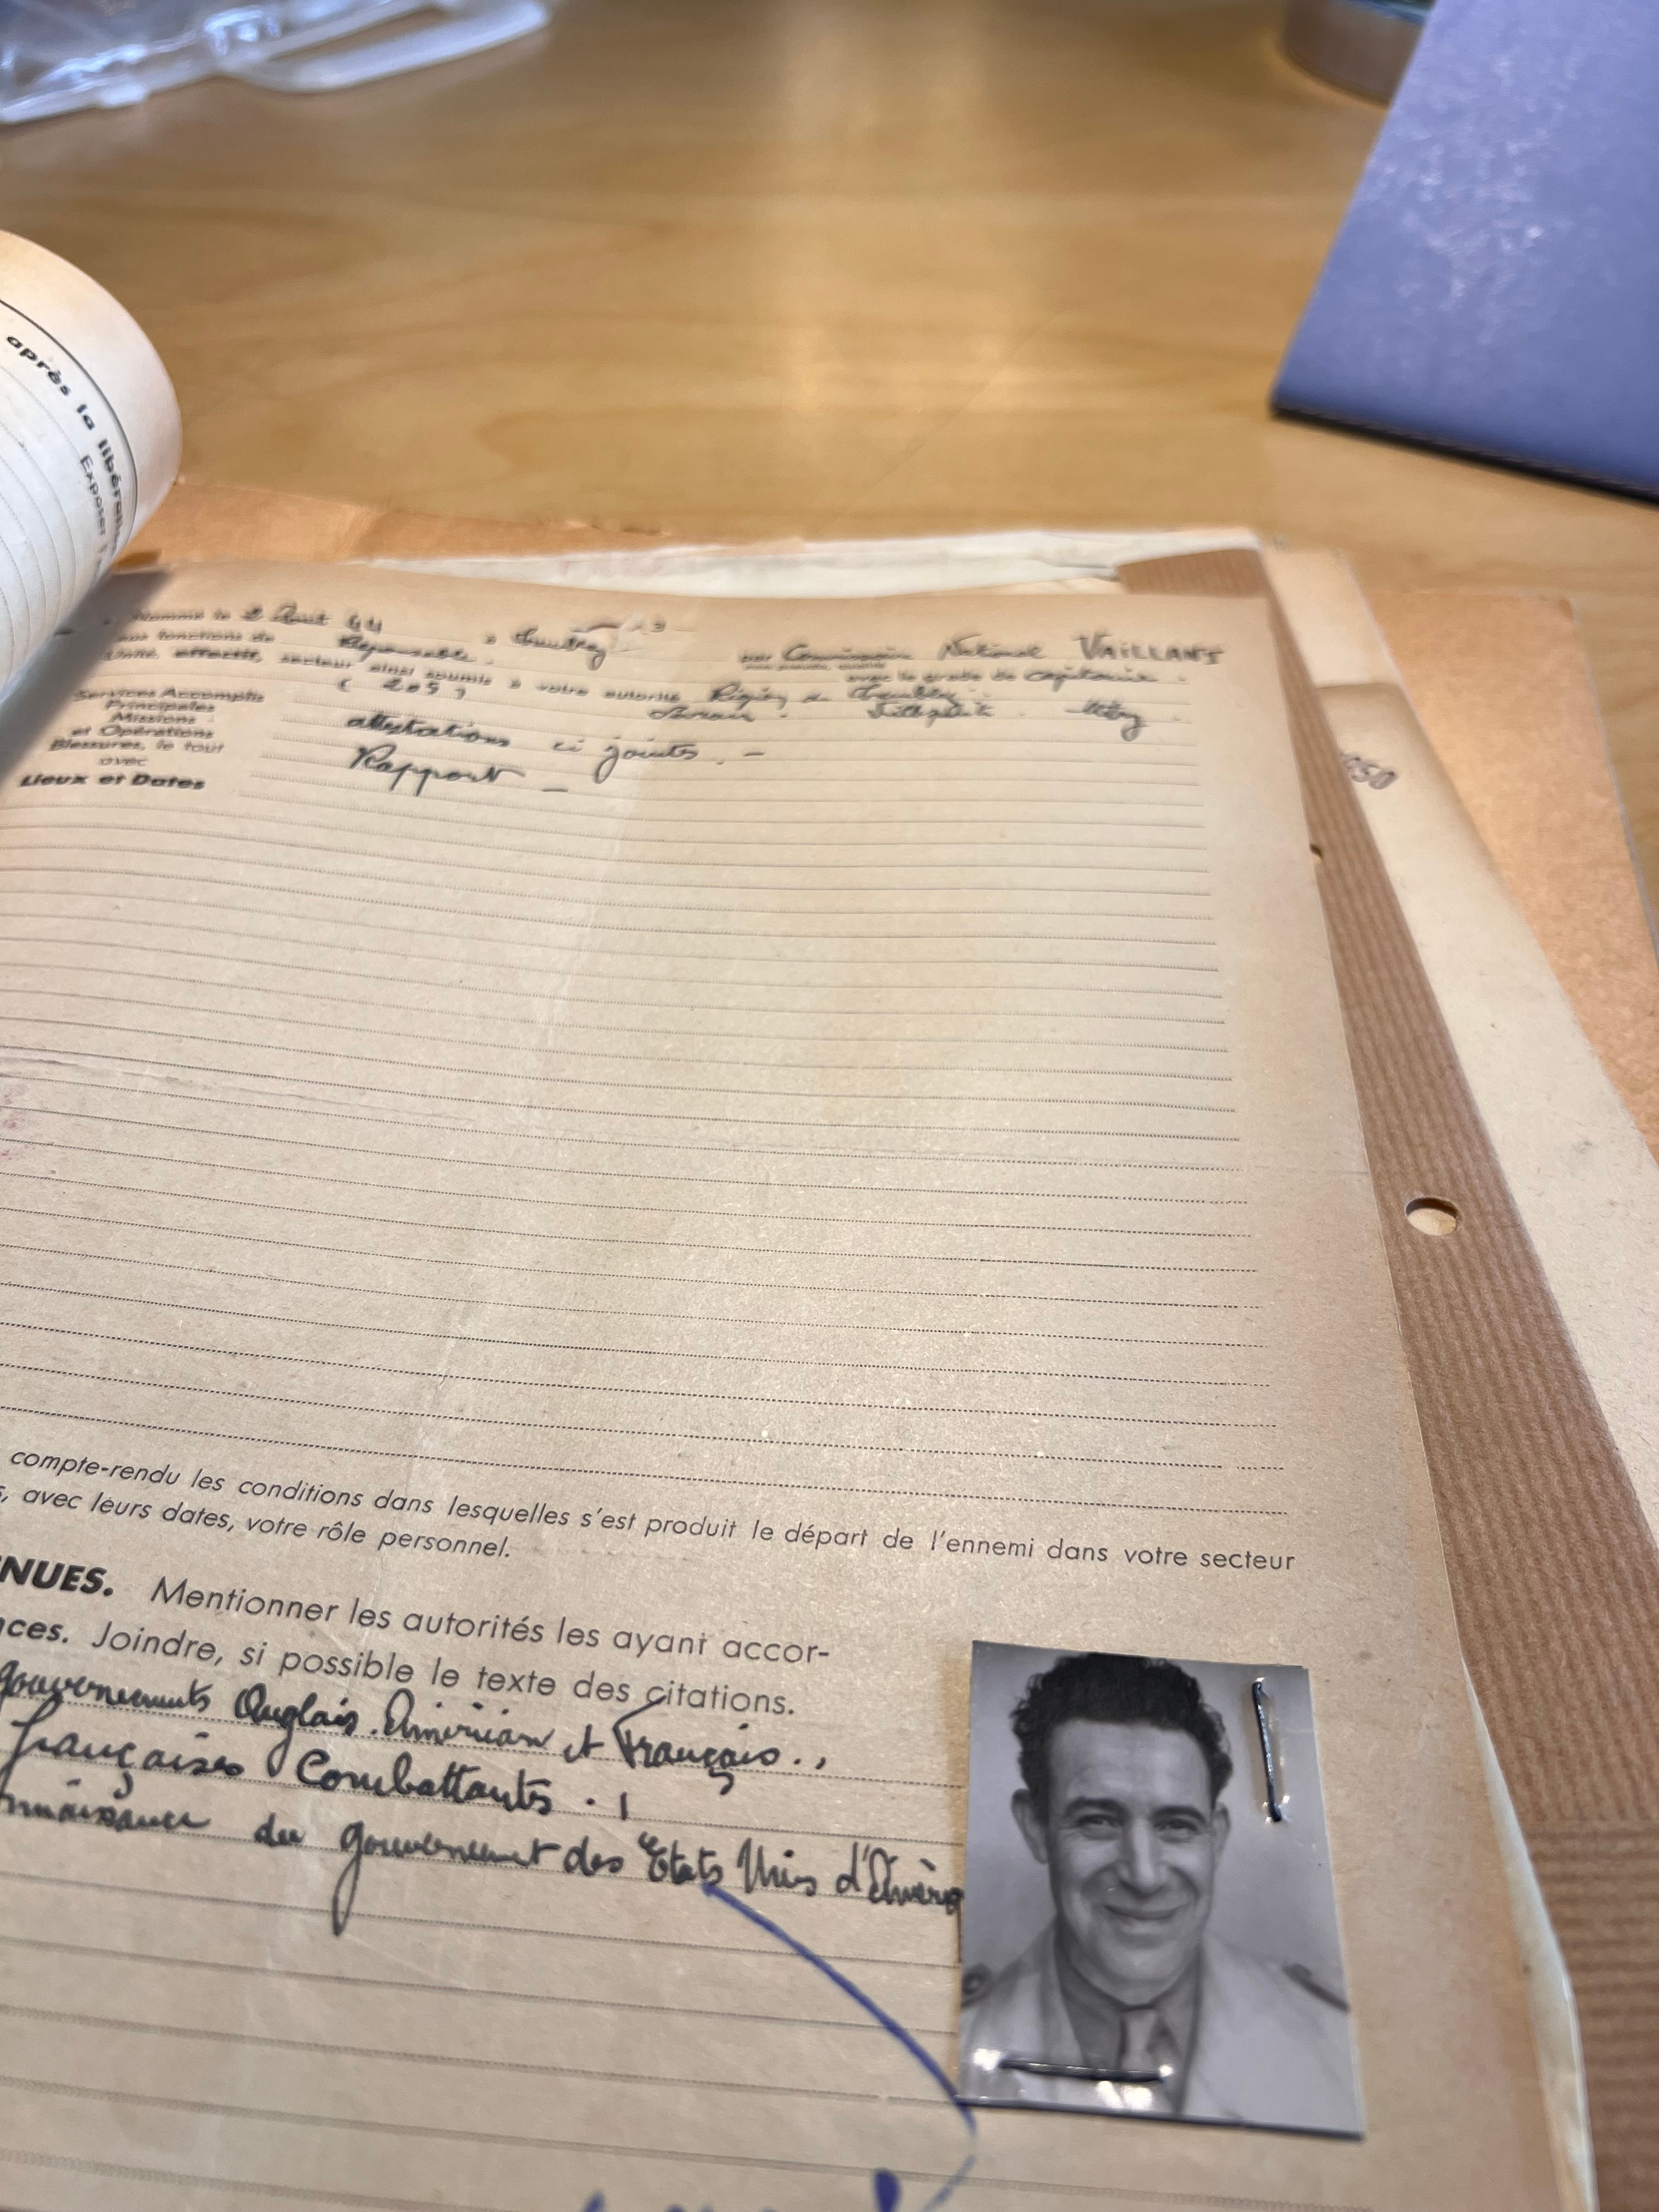 après la libération
Exposer
Nommé le 2 Août 44 à
aux fonctions de Responsable. par Commissaire National VAILLANT
Unité, effectif, secteur ainsi soumis à votre autorité avec le grade de capitaine.
(205) Région de
Services Accomplis
Principales
Missions
et Opérations
Blessures, le tout
avec
Lieux et Dates
attestations ci jointes. —
Rapport —
650
compte-rendu les conditions dans lesquelles s'est produit le départ de l'ennemi dans votre secteur
avec leurs dates, votre rôle personnel.
NUES. Mentionner les autorités les ayant accor-
nces. Joindre, si possible le texte des citations.
gouvernements Anglais. Américain et Français.,
françaises Combattantes.
nnaissance du gouvernement des Etats Unis d'Amériq